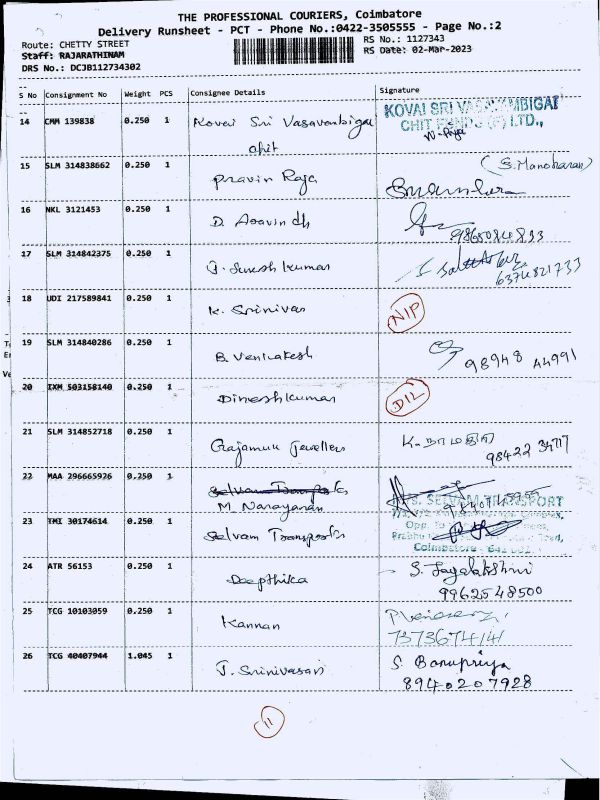 THE PROFESSIONAL COURIERS, Coimbatore
Delivery Runsheet - PCT - Phone No.:0422-3505555 - Page No.:2
Route: CHETTY STREET
RS No.: 1127343
Staff: RAJARATHINAM
RS Date: 02-Mar-2023
DRS No.: DCJB112734302
S No Consignment No Weight PCS Consignee Details Signature
14 CMM 139838 0.250 1 Kovai Sri Vasavambigai
chit
KOVAI SRI VASAVAMBIGAI
CHIT FUNDS (P) LTD.,
15 SLM 314838662 0.250 1 Pravin Raja
(S. Manoharan)
16 NKL 3121453 0.250 1 D. Aravindh
17 SLM 314842375 0.250 1 J. Suresh kumar
6374821733
18 UDI 217589841 0.250 1 K. Srinivas NIP
19 SLM 314840286 0.250 1 B. Venkatesh
98948 44991
20 IXM 503158140 0.250 1 Dineshkumar DIL
21 SLM 314852718 0.250 1 Jewellers
22 MAA 296665926 0.250 1 Selvam Transports
M. Narayanan
SELVAM TRANSPORT
23 TMI 30174614 0.250 1 Selvam Transports
Coimbatore
24 ATR 56153 0.250 1 Deepthika S. Jayalakshmi
9962548500
25 TCG 10103059 0.250 1 Kannan
7373674141
26 TCG 40407944 1.045 1 T. Srinivasan S. Banupriya
8940207928
11